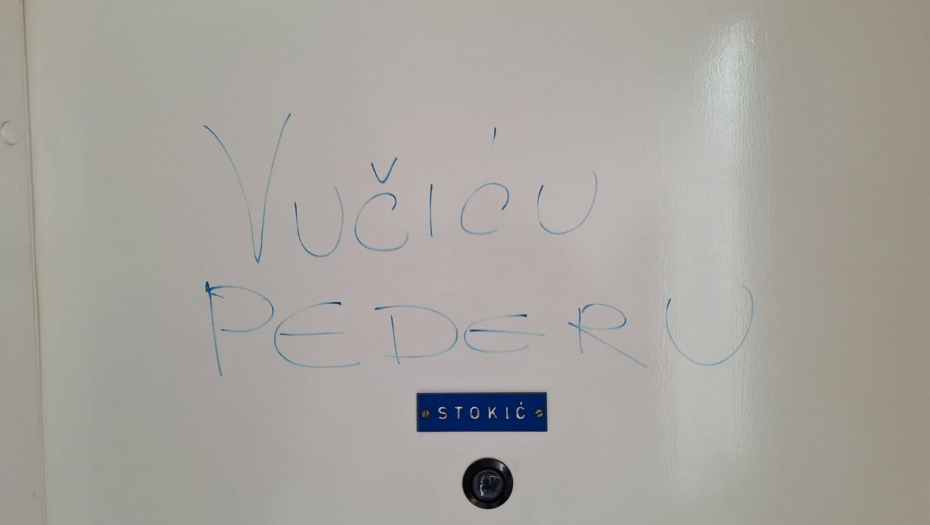 VUČIĆU
PEDERU
STOKIĆ